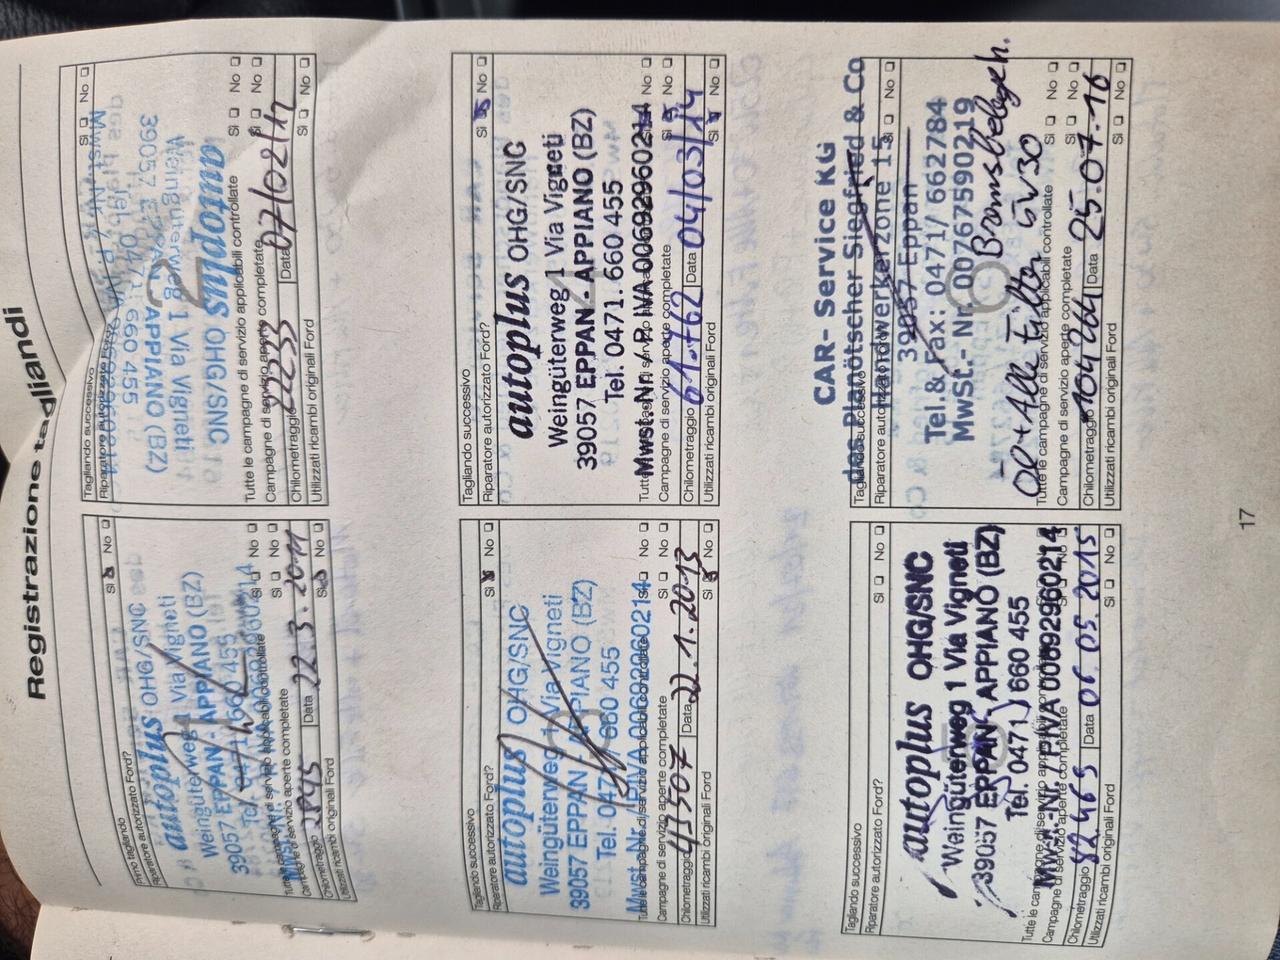 Registrazione tagliandi
Primo tagliando
Riparatore autorizzato Ford? Sì No
autoplus OHG/SNC
Weingüterweg 1 Via Vigneti
39057 EPPAN - APPIANO (BZ)
Tel. 0471. 660 455
Tutte le campagne di servizio applicabili controllate Sì No
Campagne di servizio aperte completate Sì No
Chilometraggio Data 22.3.2011
Utilizzati ricambi originali Ford Sì No
Tagliando successivo
Riparatore autorizzato Ford? Sì No
autoplus OHG/SNC
Weingüterweg 1 Via Vigneti
39057 EPPAN - APPIANO (BZ)
0471. 660 455
Tutte le campagne di servizio applicabili controllate Sì No
Campagne di servizio aperte completate Sì No
Chilometraggio 22233 Data 07/02/12
Utilizzati ricambi originali Ford Sì No
Tagliando successivo
Riparatore autorizzato Ford? Sì No
autoplus OHG/SNC
Weingüterweg 1 Via Vigneti
39057 EPPAN - APPIANO (BZ)
Tel. 0471. 660 455
Mwst. Nr. / P. IVA 00692960214
Tutte le campagne di servizio applicabili controllate Sì No
Campagne di servizio aperte completate Sì No
Chilometraggio 43507 Data 22.1.2013
Utilizzati ricambi originali Ford Sì No
Tagliando successivo
Riparatore autorizzato Ford? Sì No
autoplus OHG/SNC
Weingüterweg 1 Via Vigneti
39057 EPPAN - APPIANO (BZ)
Tel. 0471. 660 455
Mwst. Nr. / P. IVA 00692960214
Tutte le campagne di servizio applicabili controllate Sì No
Campagne di servizio aperte completate Sì No
Chilometraggio 61.762 Data 04/03/14
Utilizzati ricambi originali Ford Sì No
Tagliando successivo
Riparatore autorizzato Ford? Sì No
autoplus OHG/SNC
Weingüterweg 1 Via Vigneti
39057 EPPAN - APPIANO (BZ)
Tel. 0471. 660 455
Mwst. Nr. / P. IVA 00692960214
Tutte le campagne di servizio applicabili controllate Sì No
Campagne di servizio aperte completate Sì No
Chilometraggio 82.465 Data 06.05.2015
Utilizzati ricambi originali Ford Sì No
CAR- Service KG
des Planötscher Siegfried & Co
Tagliando successivo
Riparatore autorizzato Sì No
Handwerkerzone 15
39057 Eppan
Tel.& Fax: 0471/ 662784
Mwst.- Nr. 00767590219
Öl + Alle Filter 5W30 Bremsbelege h.
Tutte le campagne di servizio applicabili controllate Sì No
Campagne di servizio aperte completate Sì No
Chilometraggio 104264 Data 25.07.16
Utilizzati ricambi originali Ford Sì No
17